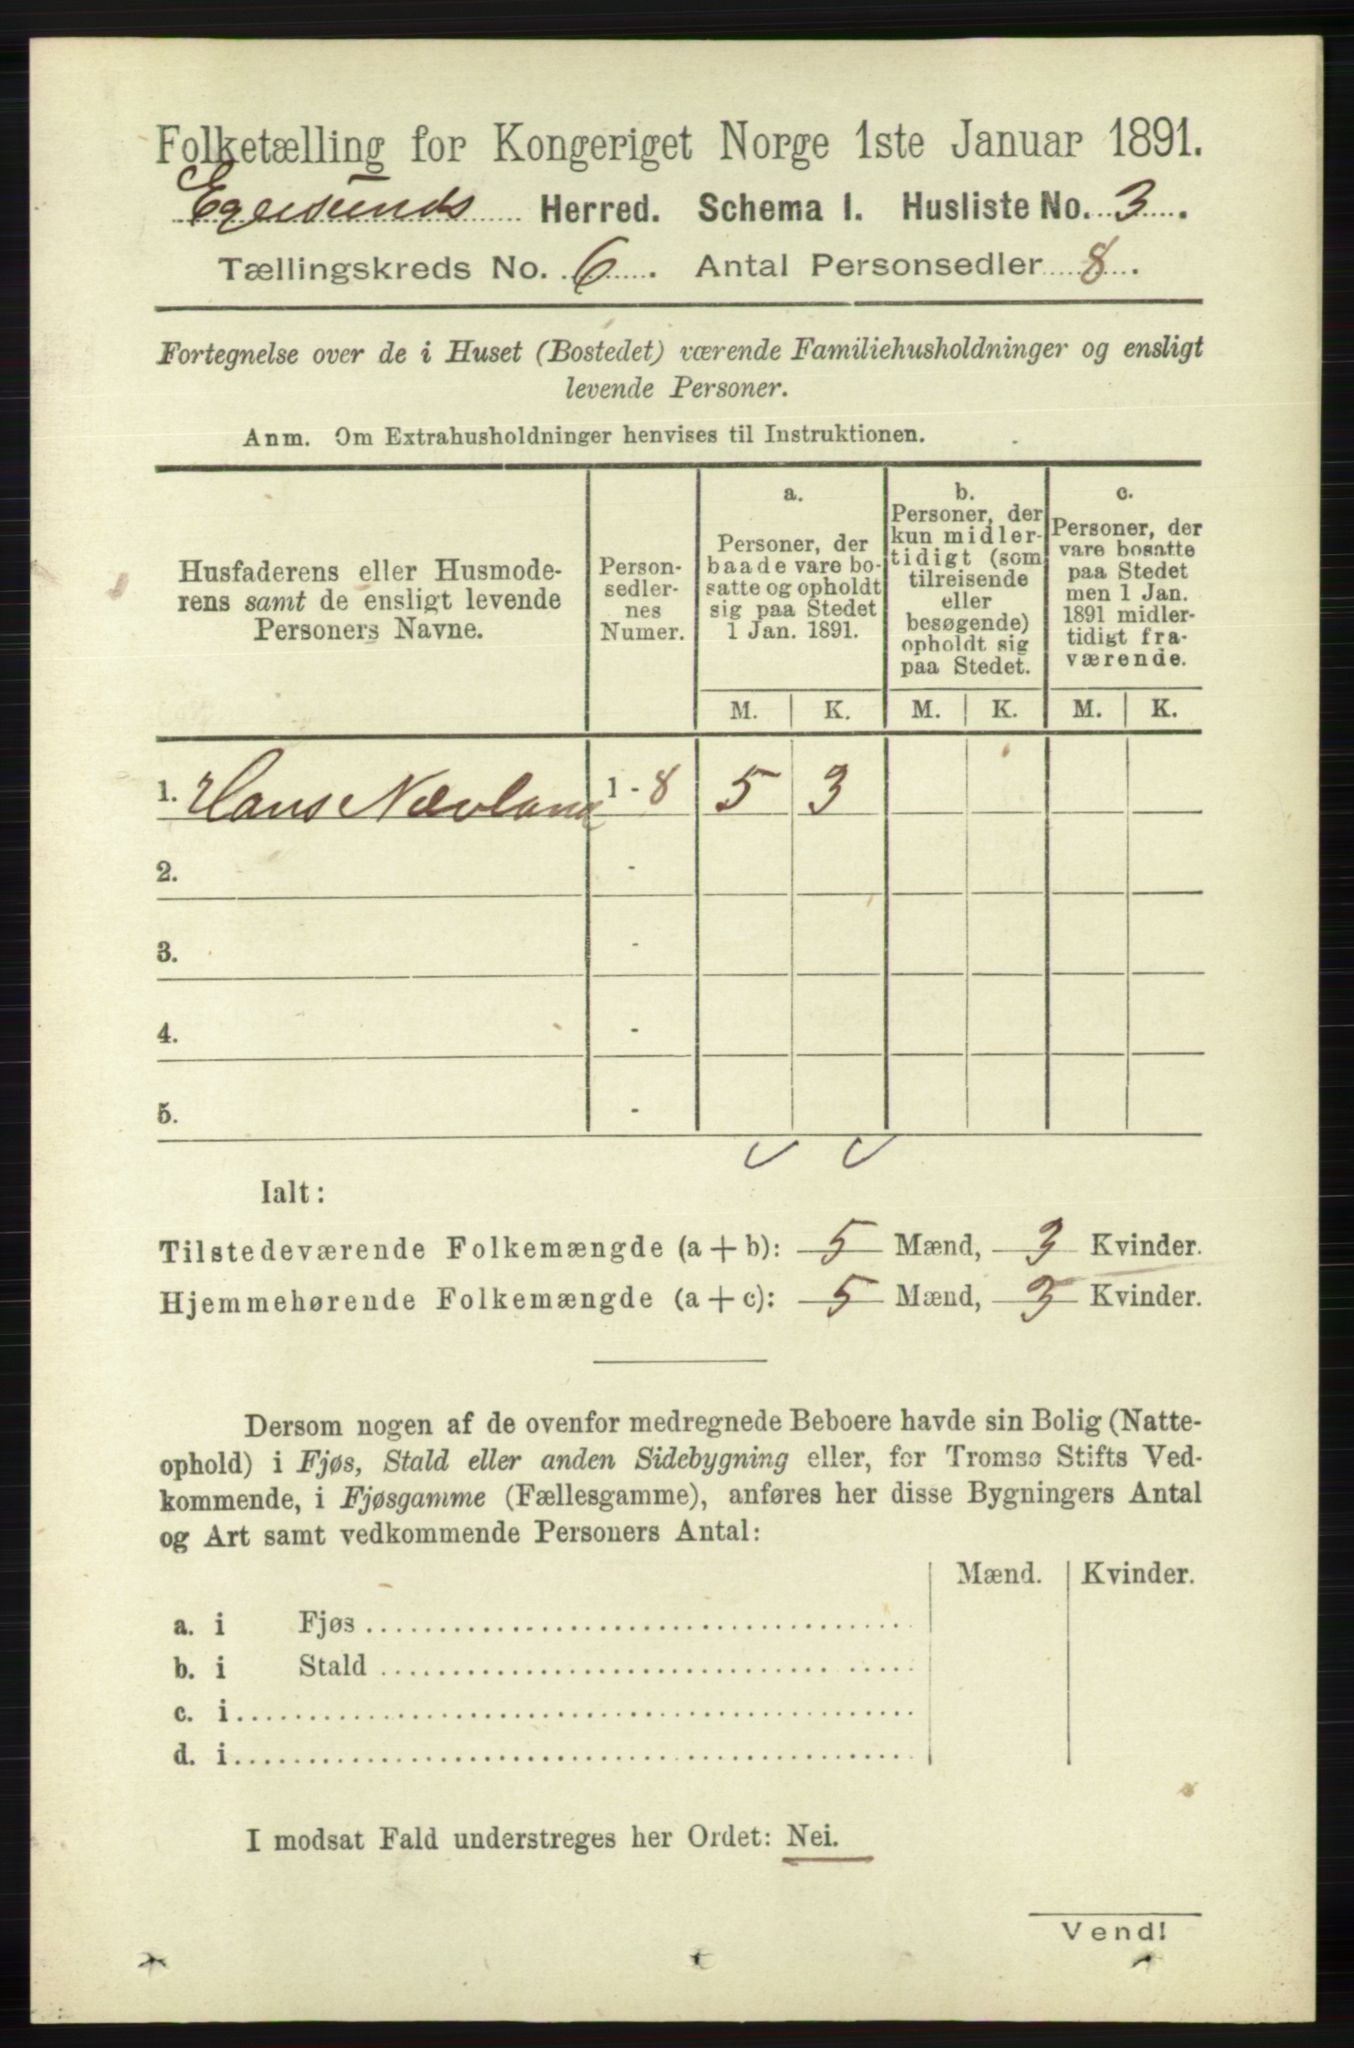 Folketælling for Kongeriget Norge 1ste Januar 1891.
Egersunds Herred. Schema I. Husliste No. 3.
Tællingskreds No. 6. Antal Personsedler 8.
Fortegnelse over de i Huset (Bostedet) værende Familiehusholdninger og ensligt
levende Personer.
Anm. Om Extrahusholdninger henvises til Instruktionen.
Husfaderens eller Husmode-
rens samt de ensligt levende
Personers Navne.
Person-
sedler-
nes
Numer.
a.
Personer, der
baade vare bo-
satte og opholdt
sig paa Stedet
1 Jan. 1891.
b.
Personer, der
kun midler-
tidigt (som
tilreisende
eller
besøgende)
opholdt sig
paa Stedet.
c.
Personer, der
vare bosatte
paa Stedet
men 1 Jan.
1891 midler-
tidigt fra-
værende.
M. K. M. K. M. K.
1. Hans Nævland 1 - 8 5 3
2. -
3. -
4. -
5. -
Ialt:
Tilstedeværende Folkemængde (a + b): 5 Mænd, 3 Kvinder.
Hjemmehørende Folkemængde (a + c): 5 Mænd, 3 Kvinder.
Dersom nogen af de ovenfor medregnede Beboere havde sin Bolig (Natte-
ophold) i Fjøs, Stald eller anden Sidebygning eller, for Tromsø Stifts Ved-
kommende, i Fjøsgamme (Fællesgamme), anføres her disse Bygningers Antal
og Art samt vedkommende Personers Antal:
Mænd. Kvinder.
a. i Fjøs
b. i Stald
c. i
d. i
I modsat Fald understreges her Ordet: Nei.
Vend!